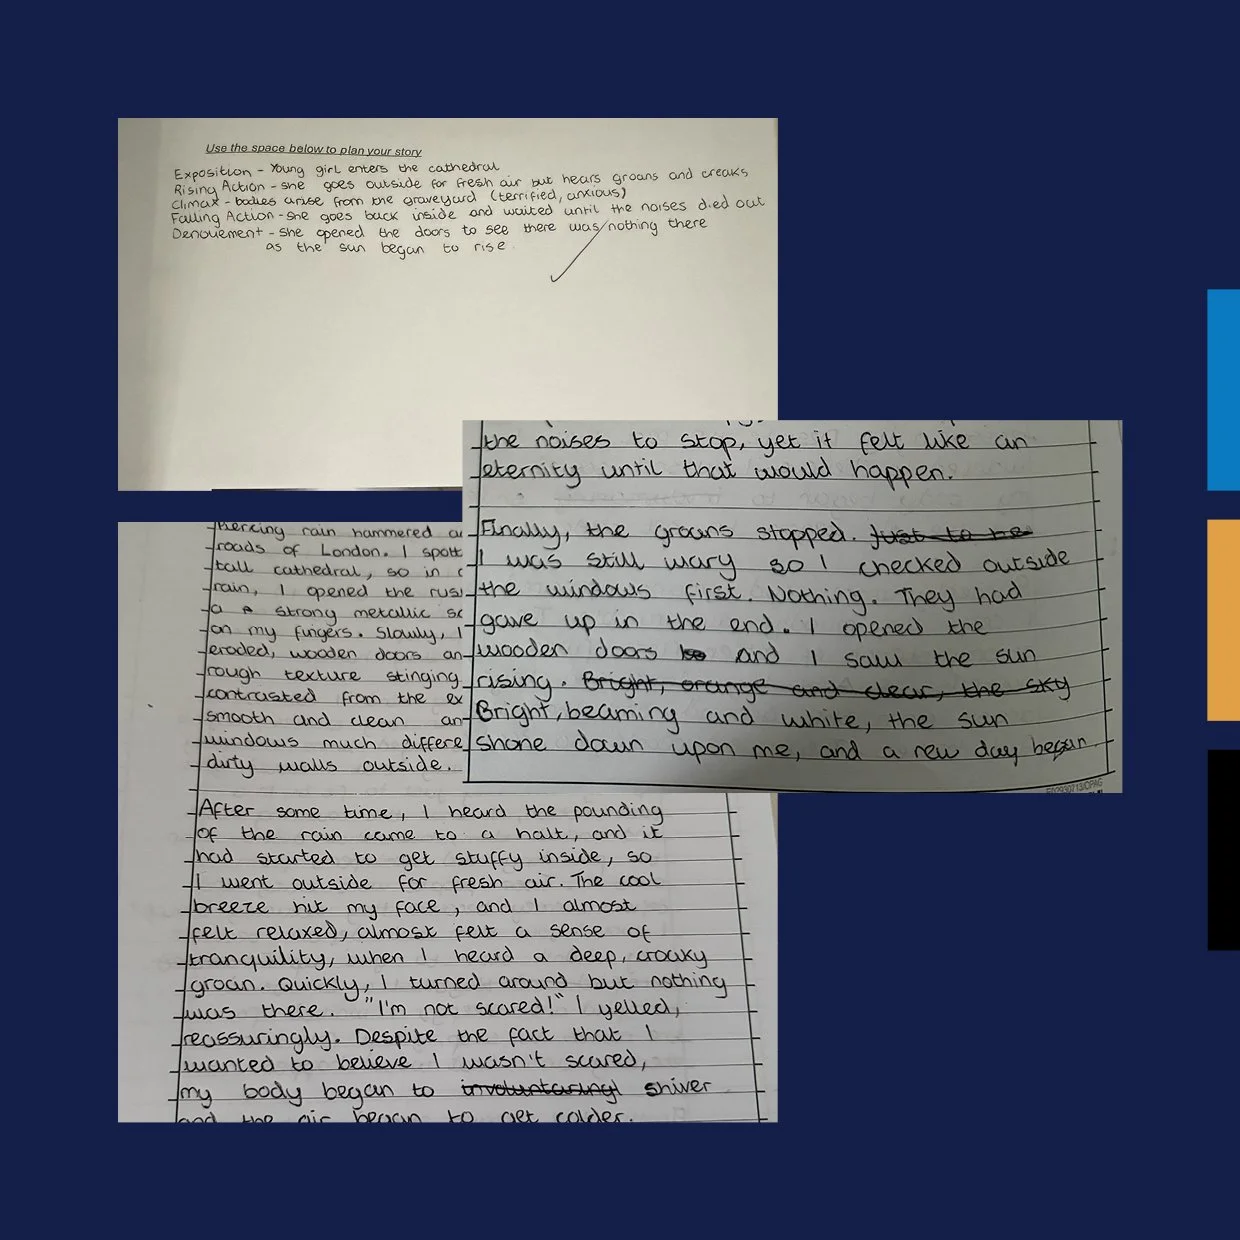 Use the space below to plan your story
Exposition - Young girl enters the cathedral
Rising Action - she goes outside for fresh air but hears groans and creaks
Climax - bodies arise from the graveyard (terrified, anxious)
Falling Action - She goes back inside and waited until the noises died out
Denouement - She opened the doors to see there was nothing there
as the sun began to rise
the noises to stop, yet it felt like an
eternity until that would happen.
Finally, the groans stopped. Just to be
I was still wary so I checked outside
the windows first. Nothing. They had
gave up in the end. I opened the
wooden doors and I saw the sun
rising. Bright, orange and clear, the sky
Bright, beaming and white, the sun
shone down upon me, and a new day began.
Piercing rain hammered
roads of London. I
tall cathedral, so in
rain, I opened the
a strong metallic
on my fingers. Slowly, I
eroded, wooden doors
rough texture stinging
contrasted from the
smooth and clean
windows much
dirty walls outside.
After some time, I heard the pounding
of the rain came to a halt, and it
had started to get stuffy inside, so
I went outside for fresh air. The cool
breeze hit my face, and I almost
felt relaxed, almost felt a sense of
tranquility, when I heard a deep, croaky
groan. Quickly, I turned around but nothing
was there. "I'm not scared!" I yelled,
reassuringly. Despite the fact that I
wanted to believe I wasn't scared,
my body began to involuntaringl shiver
and the air began to get colder.